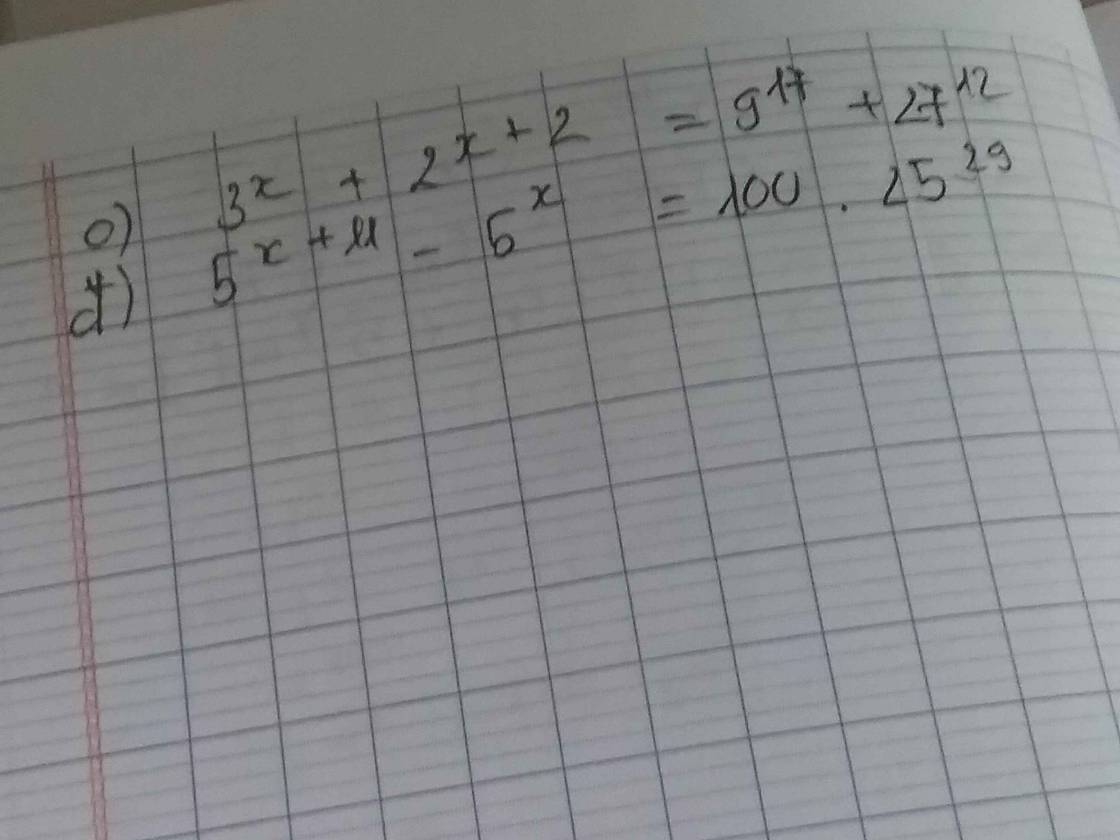 o) 3^x + 2^x + 2 = 9^17 + 27^12
d) 5^x + 11 - 5^x = 100 . 25^29